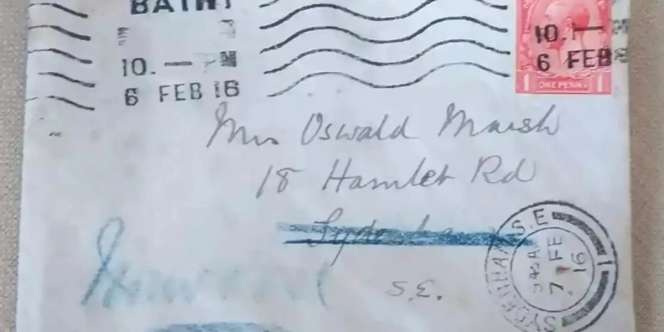 BATH
10. — PM
6 FEB 16
10. —
6 FEB 16
1 ONE PENNY 1
Mrs Oswald Marsh
18 Hamlet Rd
Sydenham
S.E.
SYDENHAM S.E
7 FE
16
1